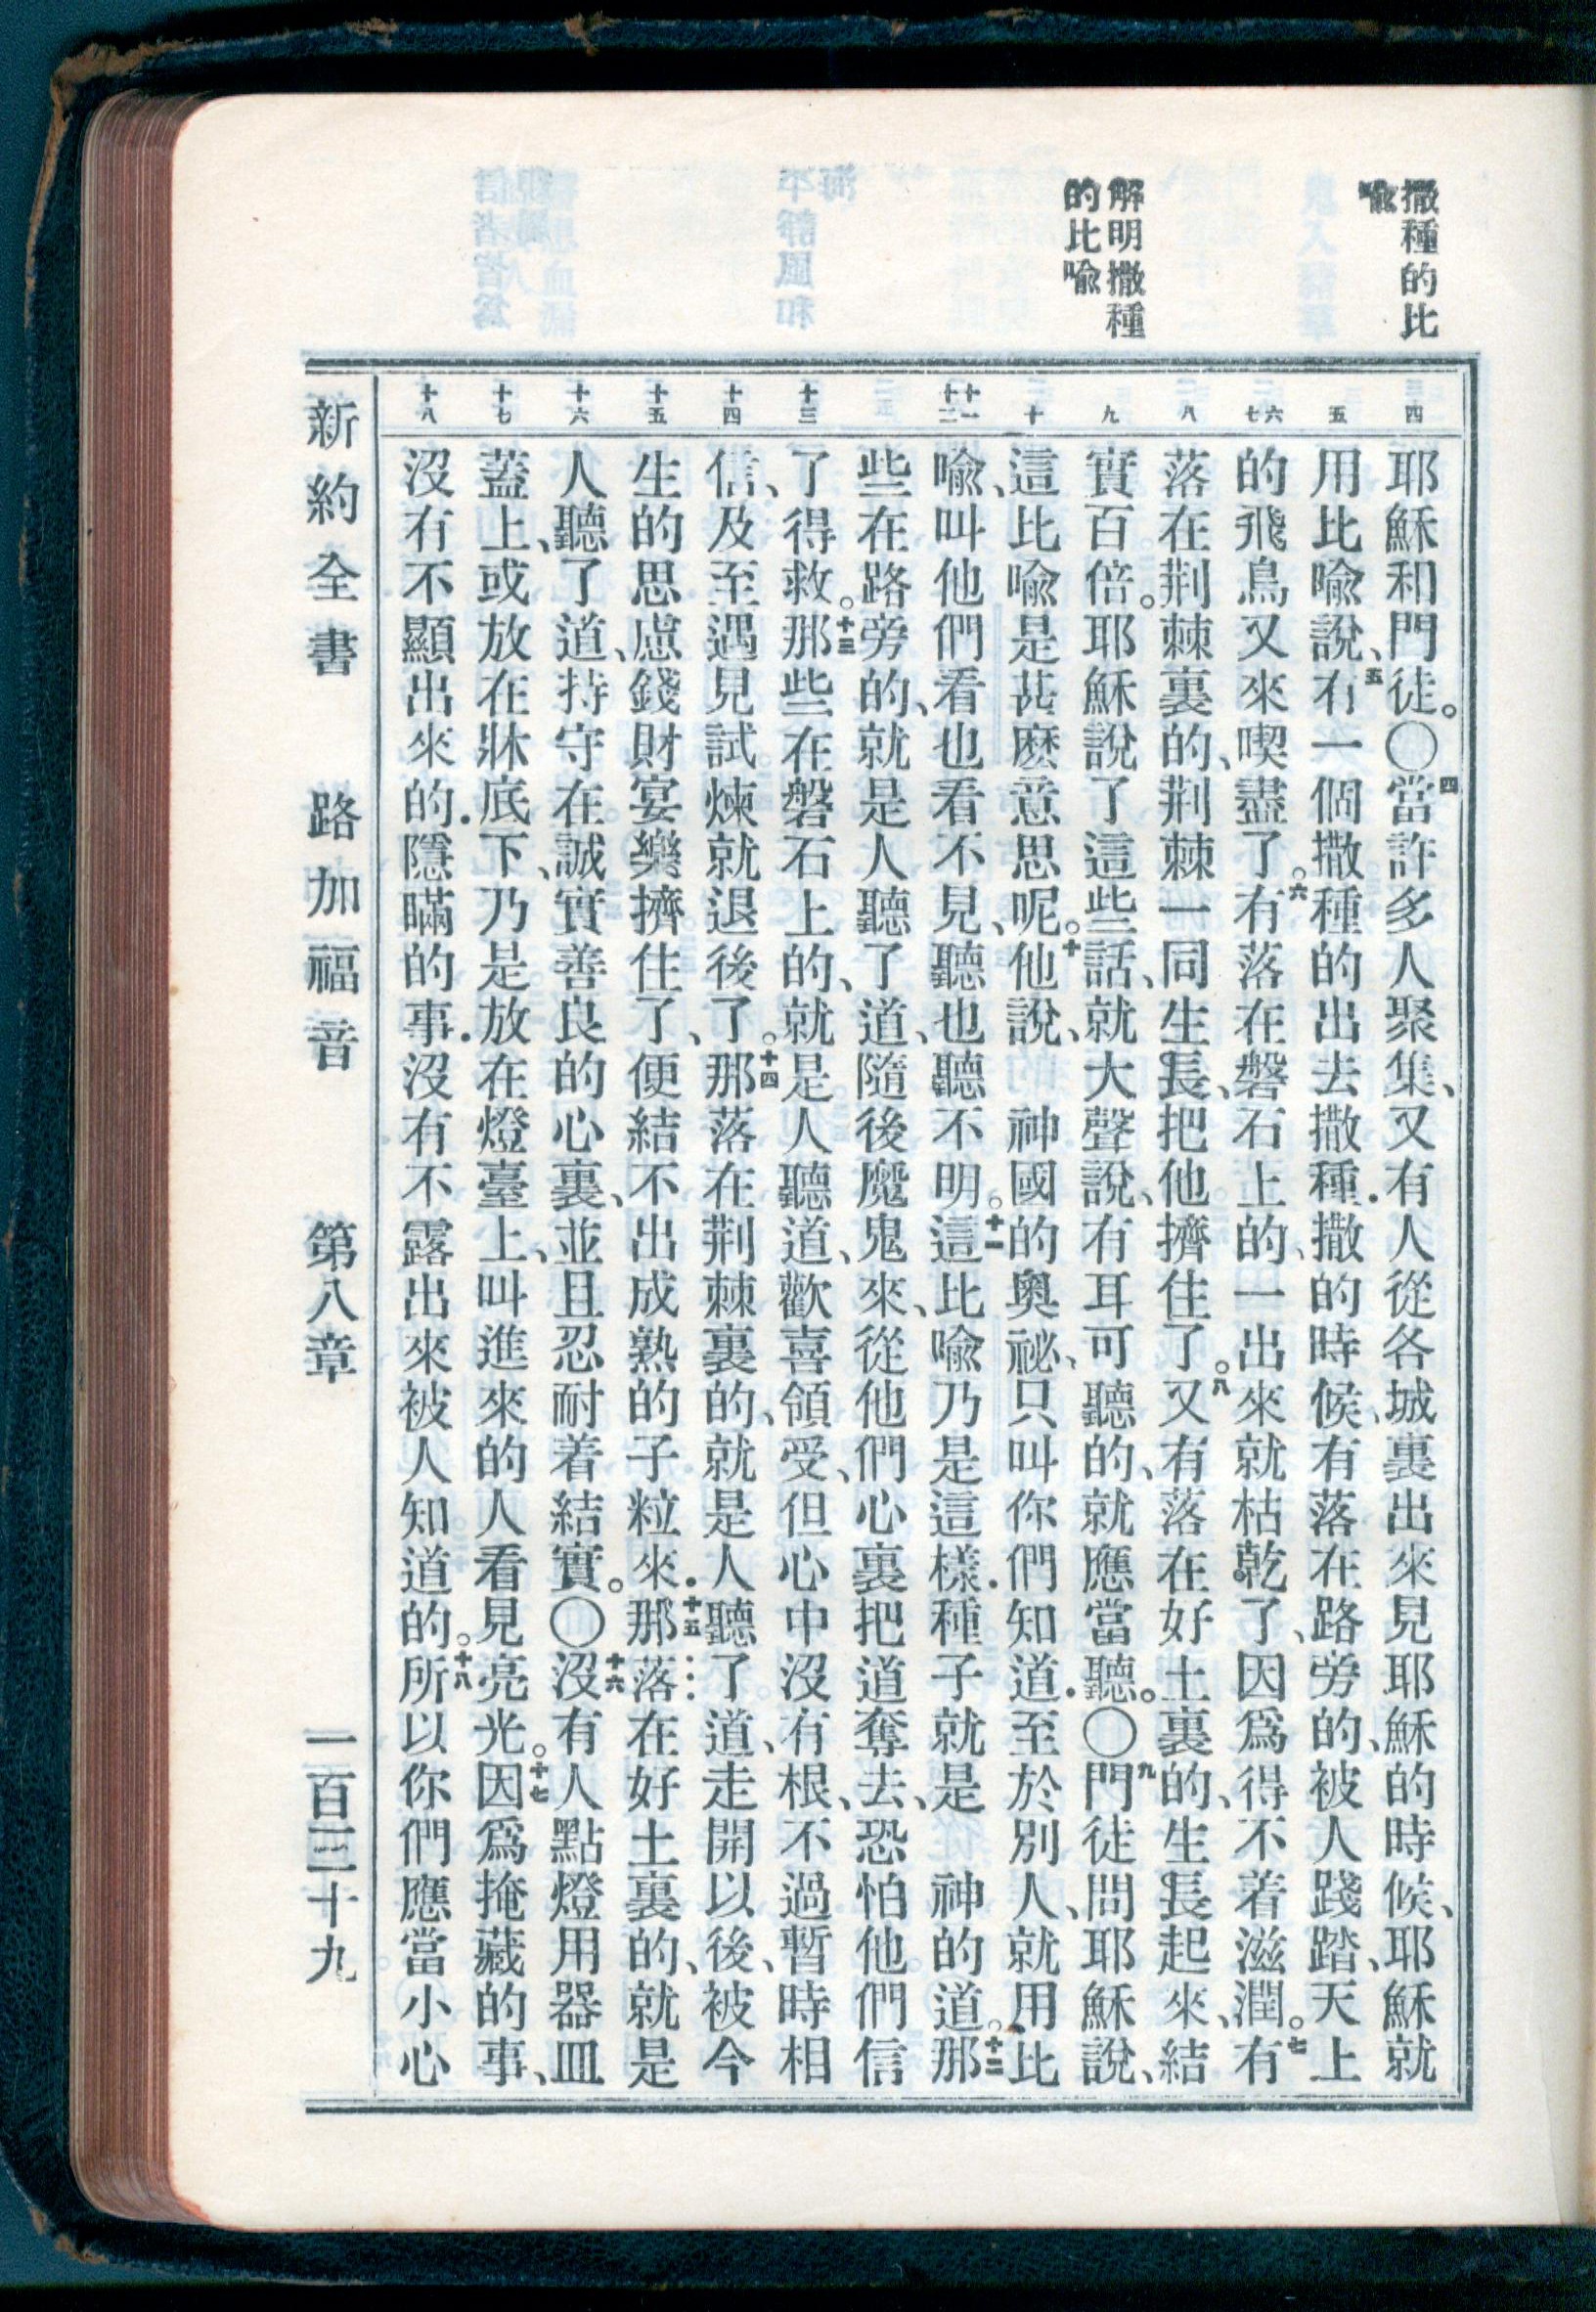 撒種的比
喩
解明撒種
的比喩
四
五
六
七
八
九
十
十一
十二
十三
十四
十五
十六
十七
十八
耶穌和門徒。〇四當許多人聚集、又有人從各城裏出來見耶穌的時候、耶穌就
用比喩說、五有一個撒種的出去撒種．撒的時候、有落在路旁的、被人踐踏、天上
的飛鳥又來喫盡了。六有落在磐石上的、一出來就枯乾了、因爲得不着滋潤。七有
落在荆棘裏的、荆棘一同生長、把他擠住了。八又有落在好土裏的、生長起來、結
實百倍。耶穌說了這些話、就大聲說、有耳可聽的、就應當聽。〇九門徒問耶穌說、
這比喩是甚麽意思呢。十他說、神國的奧祕、只叫你們知道．至於別人、就用比
喩、叫他們看也看不見、聽也聽不明。十一這比喩乃是這樣．種子就是神的道。十二那
些在路旁的、就是人聽了道、隨後魔鬼來、從他們心裏把道奪去、恐怕他們信
了得救。十三那些在磐石上的、就是人聽道、歡喜領受、但心中沒有根、不過暫時相
信、及至遇見試煉就退後了。十四那落在荆棘裏的、就是人聽了道、走開以後、被今
生的思慮錢財宴樂擠住了、便結不出成熟的子粒來．十五那落在好土裏的、就是
人聽了道、持守在誠實善良的心裏、並且忍耐着結實。〇十六沒有人點燈用器皿
蓋上、或放在牀底下、乃是放在燈臺上、叫進來的人看見亮光。十七因爲掩藏的事、
沒有不顯出來的．隱瞞的事．沒有不露出來被人知道的。十八所以你們應當小心
新約全書　路加福音　第八章　一百三十九